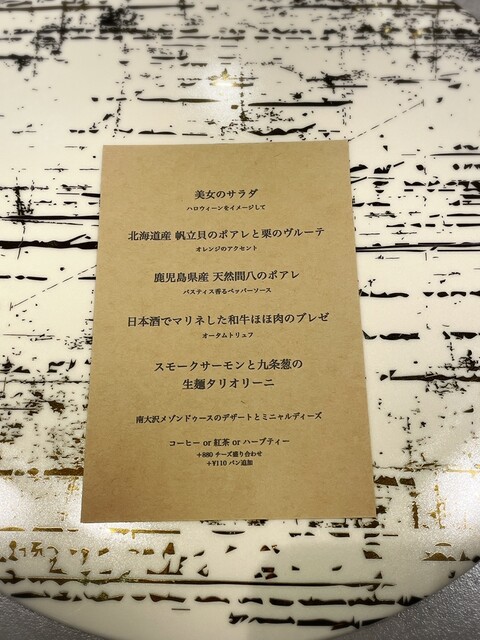 美女のサラダ
ハロウィーンをイメージして
北海道産 帆立貝のポアレと栗のヴルーテ
オレンジのアクセント
鹿児島県産 天然間八のポアレ
パスティス香るペッパーソース
日本酒でマリネした和牛ほほ肉のブレゼ
オータムトリュフ
スモークサーモンと九条葱の
生麺タリオリーニ
南大沢メゾンドゥースのデザートとミニャルディーズ
コーヒー or 紅茶 or ハーブティー
+880 チーズ盛り合わせ
+¥110 パン追加